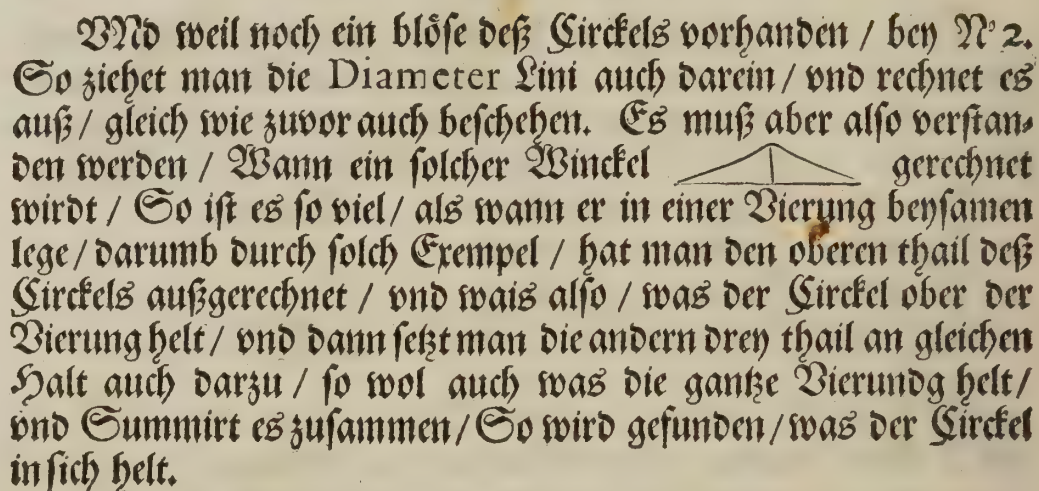 VNd weil noch ein blöse deß Circkels vorhanden / bey No 2.
So ziehet man die Diameter Lini auch darein / vnd rechnet es
auß / gleich wie zuvor auch beschehen. Es muß aber also verstan-
den werden / Wann ein solcher Winckel gerechnet
wirdt / So ist es so viel / als wann er in einer Vierung beysamen
lege / darumb durch solch Exempel / hat man den oberen thail deß
Circkels außgerechnet / vnd wais also / was der Circkel ober der
Vierung helt / vnd dann setzt man die andern drey thail an gleichen
Halt auch darzu / so wol auch was die gantze Vierundg helt /
vnd Summirt es zusammen / So wird gefunden / was der Circkel
in sich helt.